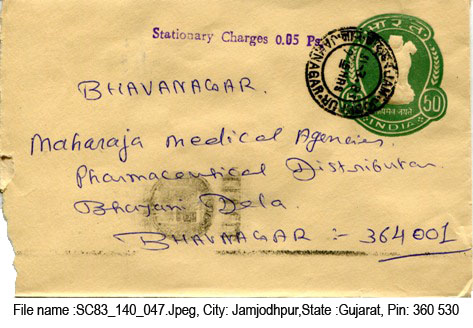 Stationary Charges 0.05 Ps.
भारत
50
सत्यमेव जयते
INDIA
BHAVANAGAR.
Maharaja medical Agencies.
Pharmaceutical Distributar.
Bhajani Dela.
BHAVNAGAR :- 364001
File name :SC83_140_047.Jpeg, City: Jamjodhpur,State :Gujarat, Pin: 360 530